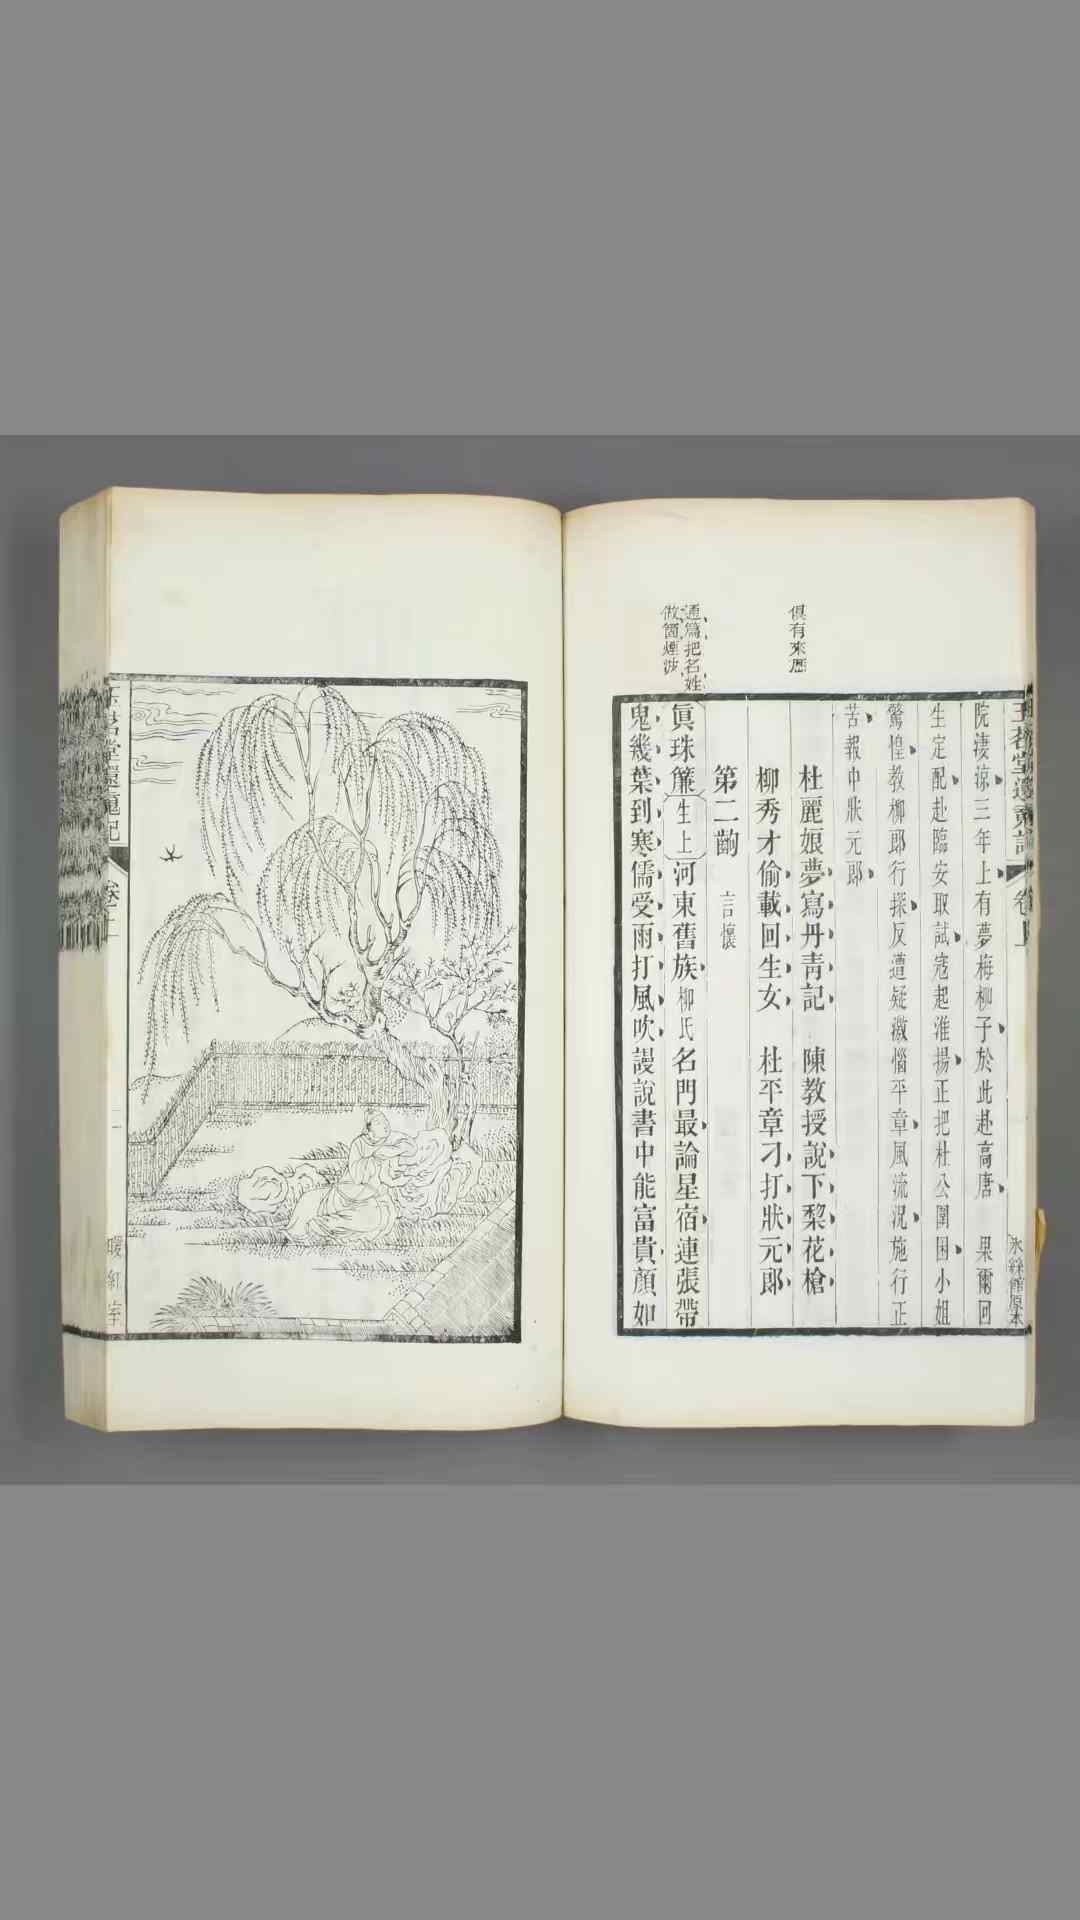 玉茗堂還魂記
卷上
冰絲館原本
院淒涼三年上有夢梅柳子於此赴高唐　果爾回
生定配赴臨安取試寇起淮揚正把杜公圍困小姐
驚惶教柳郎行探反遭疑激惱平章風流況施行正
苦報中狀元郎
俱有來歷
杜麗娘夢寫丹青記　陳教授說下棃花槍
柳秀才偷載回生女　杜平章刁打狀元郎
第二齣　言懷
通篇把名姓
做箇煙波
眞珠簾生上河東舊族柳氏名門最論星宿連張帶
鬼幾葉到寒儒受雨打風吹謾說書中能富貴顏如
玉茗堂還魂記
卷上
二
暖紅室